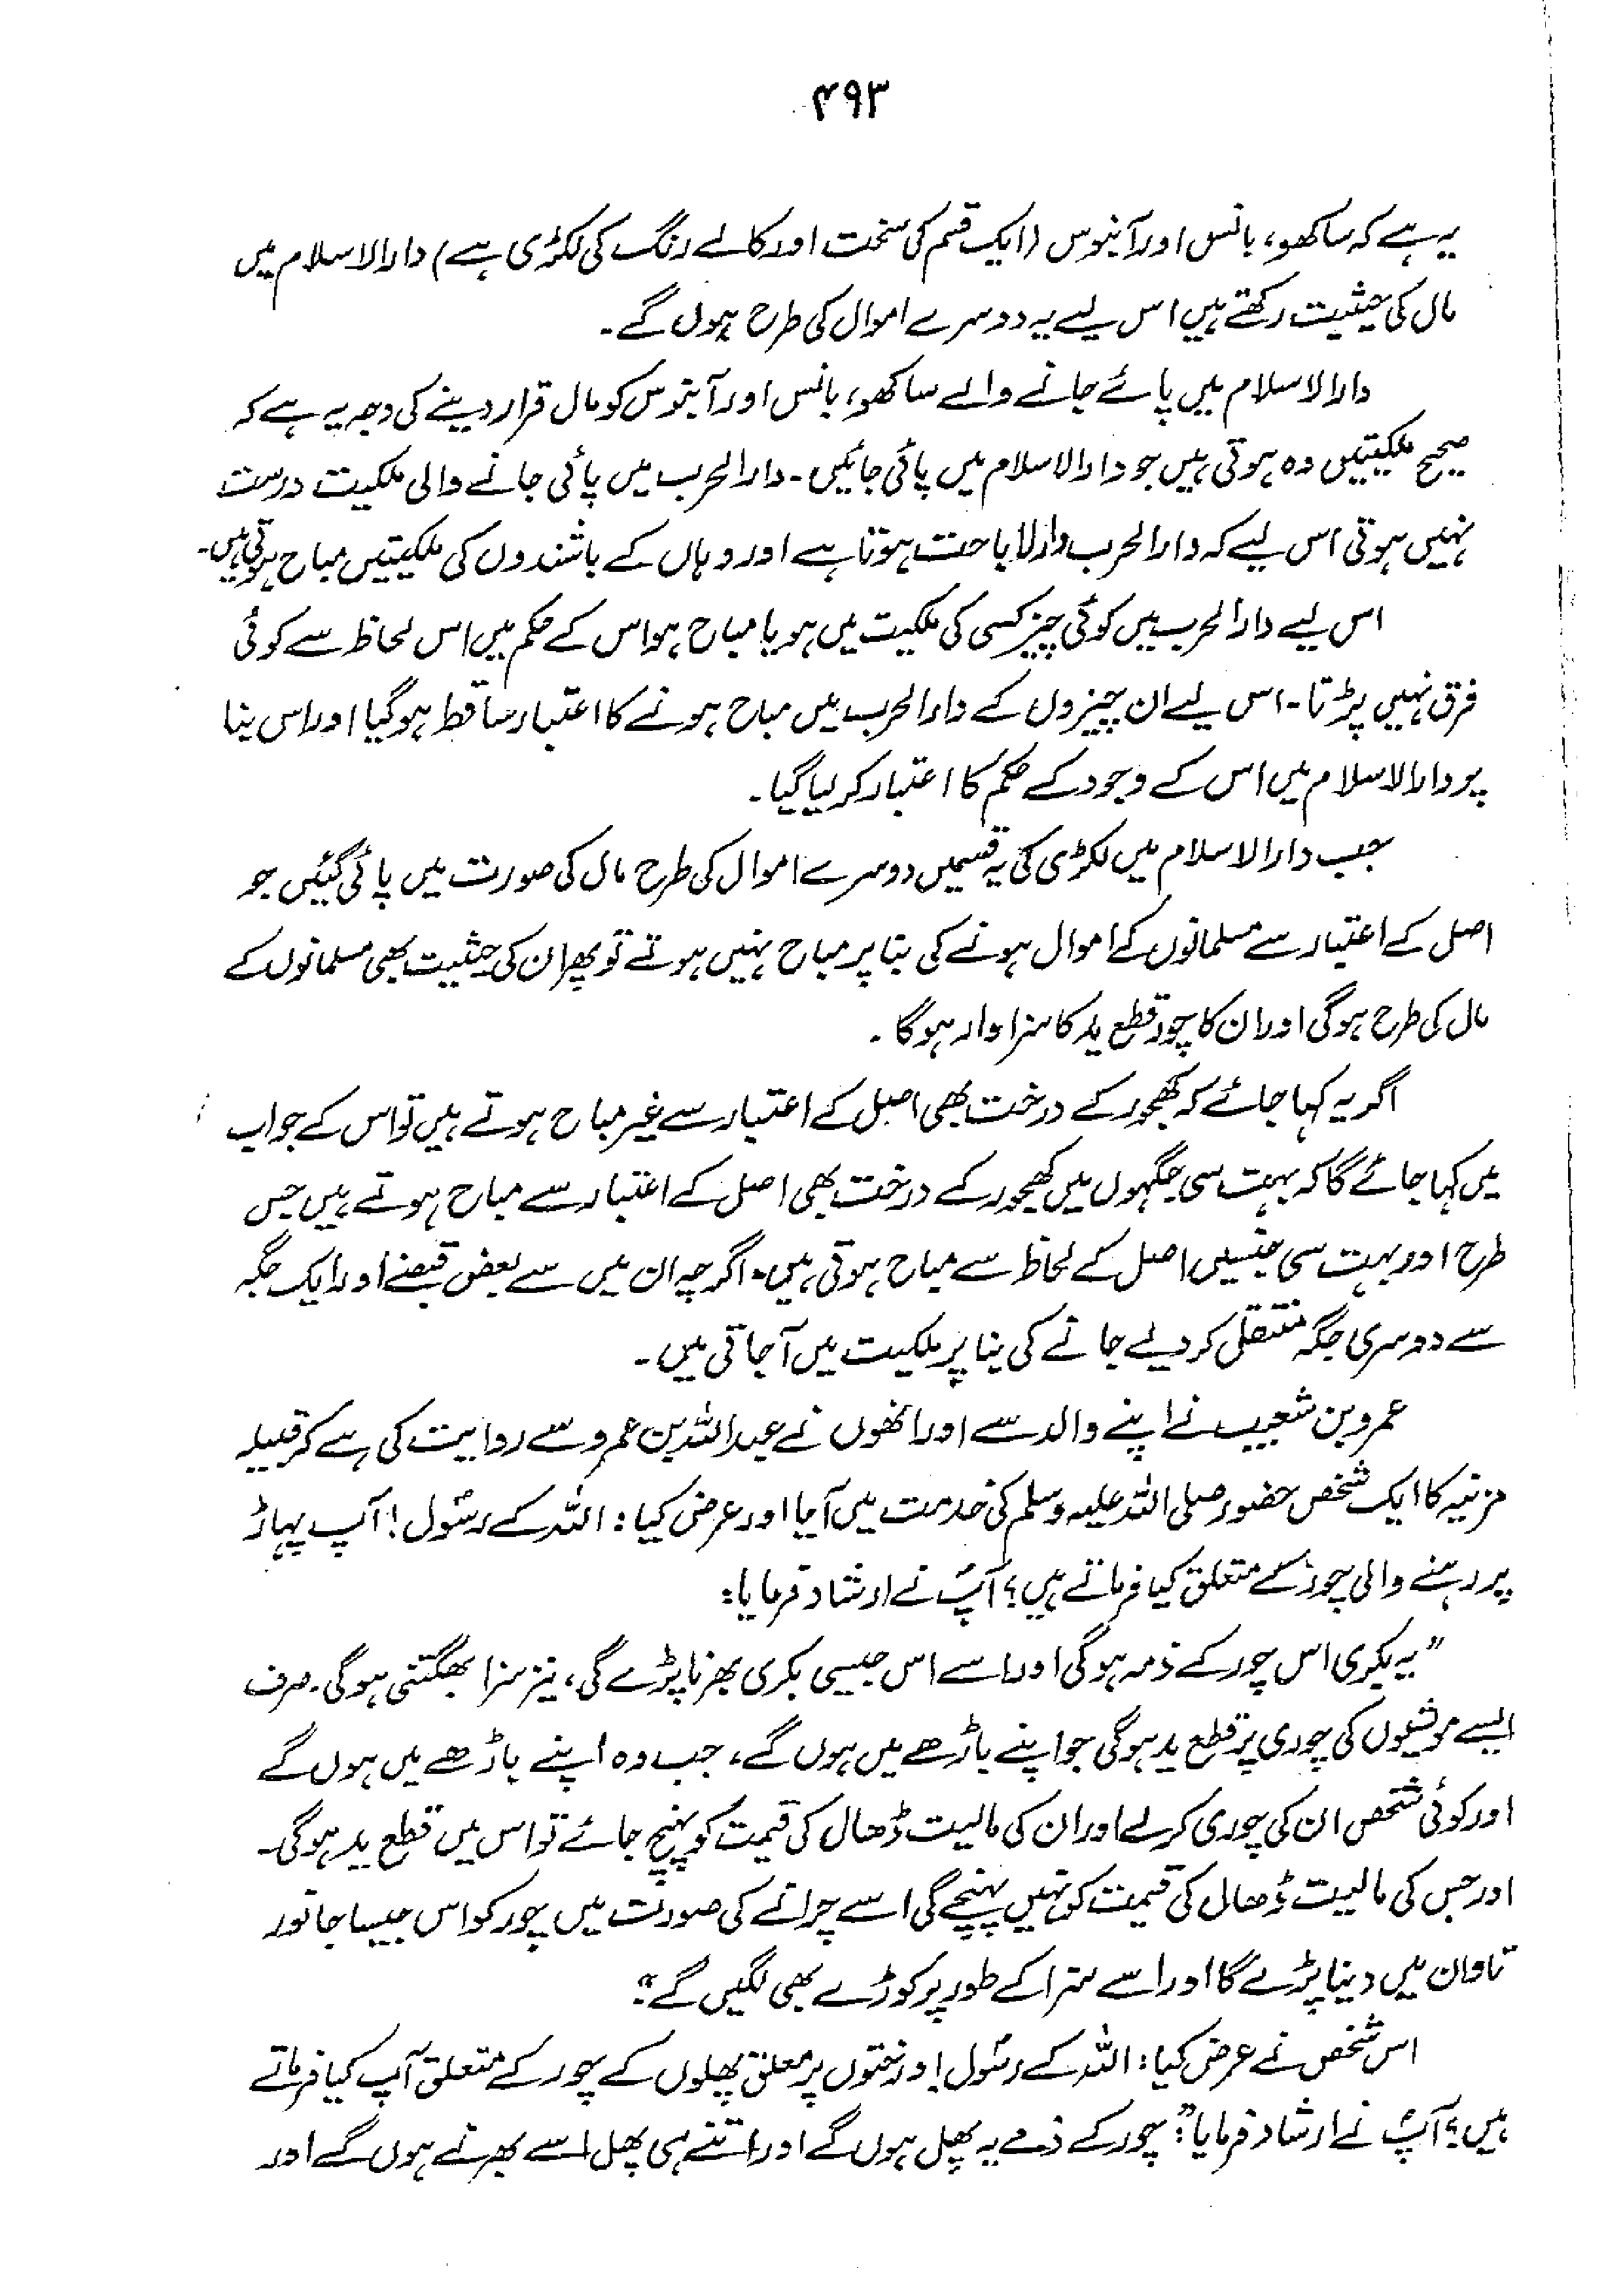 ۴۹۳
یہ ہے کہ ساکھو، بانس اور آبنوس (ایک قسم کی سخت اور کالے رنگ کی لکڑی ہے) دارالاسلام میں
مال کی حیثیت رکھتے ہیں اس لیے یہ دوسرے اموال کی طرح ہوں گے۔
دارالاسلام میں پائے جانے والے ساکھو، بانس اور آبنوس کو مال قرار دینے کی وجہ یہ ہے کہ
صحیح ملکیتیں وہ ہوتی ہیں جو دارالاسلام میں پائی جائیں۔ دارالحرب میں پائی جانے والی ملکیت درست
نہیں ہوتی اس لیے کہ دارالحرب دارلاباحت ہوتا ہے اور وہاں کے باشندوں کی ملکیتیں مباح ہوتی ہیں۔
اس لیے دارالحرب میں کوئی چیز کسی کی ملکیت میں ہو یا مباح ہو اس کے حکم میں اس لحاظ سے کوئی
فرق نہیں پڑتا۔ اس لیے ان چیزوں کے دارالحرب میں مباح ہونے کا اعتبار ساقط ہو گیا اور اس بنا
پر دارالاسلام میں اس کے وجود کے حکم کا اعتبار کر لیا گیا۔
جب دارالاسلام میں لکڑی کی یہ قسمیں دوسرے اموال کی طرح مال کی صورت میں پائی گئیں جو
اصل کے اعتبار سے مسلمانوں کے اموال ہونے کی بنا پر مباح نہیں ہوتے تو پھر ان کی حیثیت بھی مسلمانوں کے
مال کی طرح ہوگی اور ان کا چور قطع ید کا سزاوار ہوگا۔
اگر یہ کہا جائے کہ کھجور کے درخت بھی اصل کے اعتبار سے غیر مباح ہوتے ہیں تو اس کے جواب
میں کہا جائے گا کہ بہت سی جگہوں میں کھجور کے درخت بھی اصل کے اعتبار سے مباح ہوتے ہیں جس
طرح اور بہت سی جنسیں اصل کے لحاظ سے مباح ہوتی ہیں۔ اگرچہ ان میں سے بعض قبضے اور ایک جگہ
سے دوسری جگہ منتقل کر دیے جانے کی بنا پر ملکیت میں آجاتی ہیں۔
عمرو بن شعیب نے اپنے والد سے اور انھوں نے عبداللہ بن عمرو سے روایت کی ہے کہ قبیلہ
مزنیہ کا ایک شخص حضور صلی اللہ علیہ وسلم کی خدمت میں آیا اور عرض کیا: اللہ کے رسولؐ! آپ پہاڑ
پر رہنے والی چور کے متعلق کیا فرماتے ہیں؟ آپؐ نے ارشاد فرمایا:
"یہ بکری اس چور کے ذمہ ہوگی اور اسے اس جیسی بکری بھرنا پڑے گی، نیز سزا بھگتنی ہوگی۔ صرف
ایسے مویشیوں کی چوری پر قطع ید ہوگی جو اپنے باڑھے میں ہوں گے، جب وہ اپنے باڑھے میں ہوں گے
اور کوئی شخص ان کی چوری کر لے اور ان کی مالیت ڈھال کی قیمت کو پہنچ جائے تو اس میں قطع ید ہوگی۔
اور جس کی مالیت ڈھال کی قیمت کو نہیں پہنچے گی اسے چرانے کی صورت میں چور کو اس جیسا جانور
تاوان میں دینا پڑے گا اور اسے سزا کے طور پر کوڑے بھی لگیں گے۔"
اس شخص نے عرض کیا: اللہ کے رسولؐ! درختوں پر معلق پھلوں کے چور کے متعلق آپ کیا فرماتے
ہیں؟ آپؐ نے ارشاد فرمایا: "چور کے ذمے یہ پھل ہوں گے اور اتنے ہی پھل اسے بھرنے ہوں گے اور